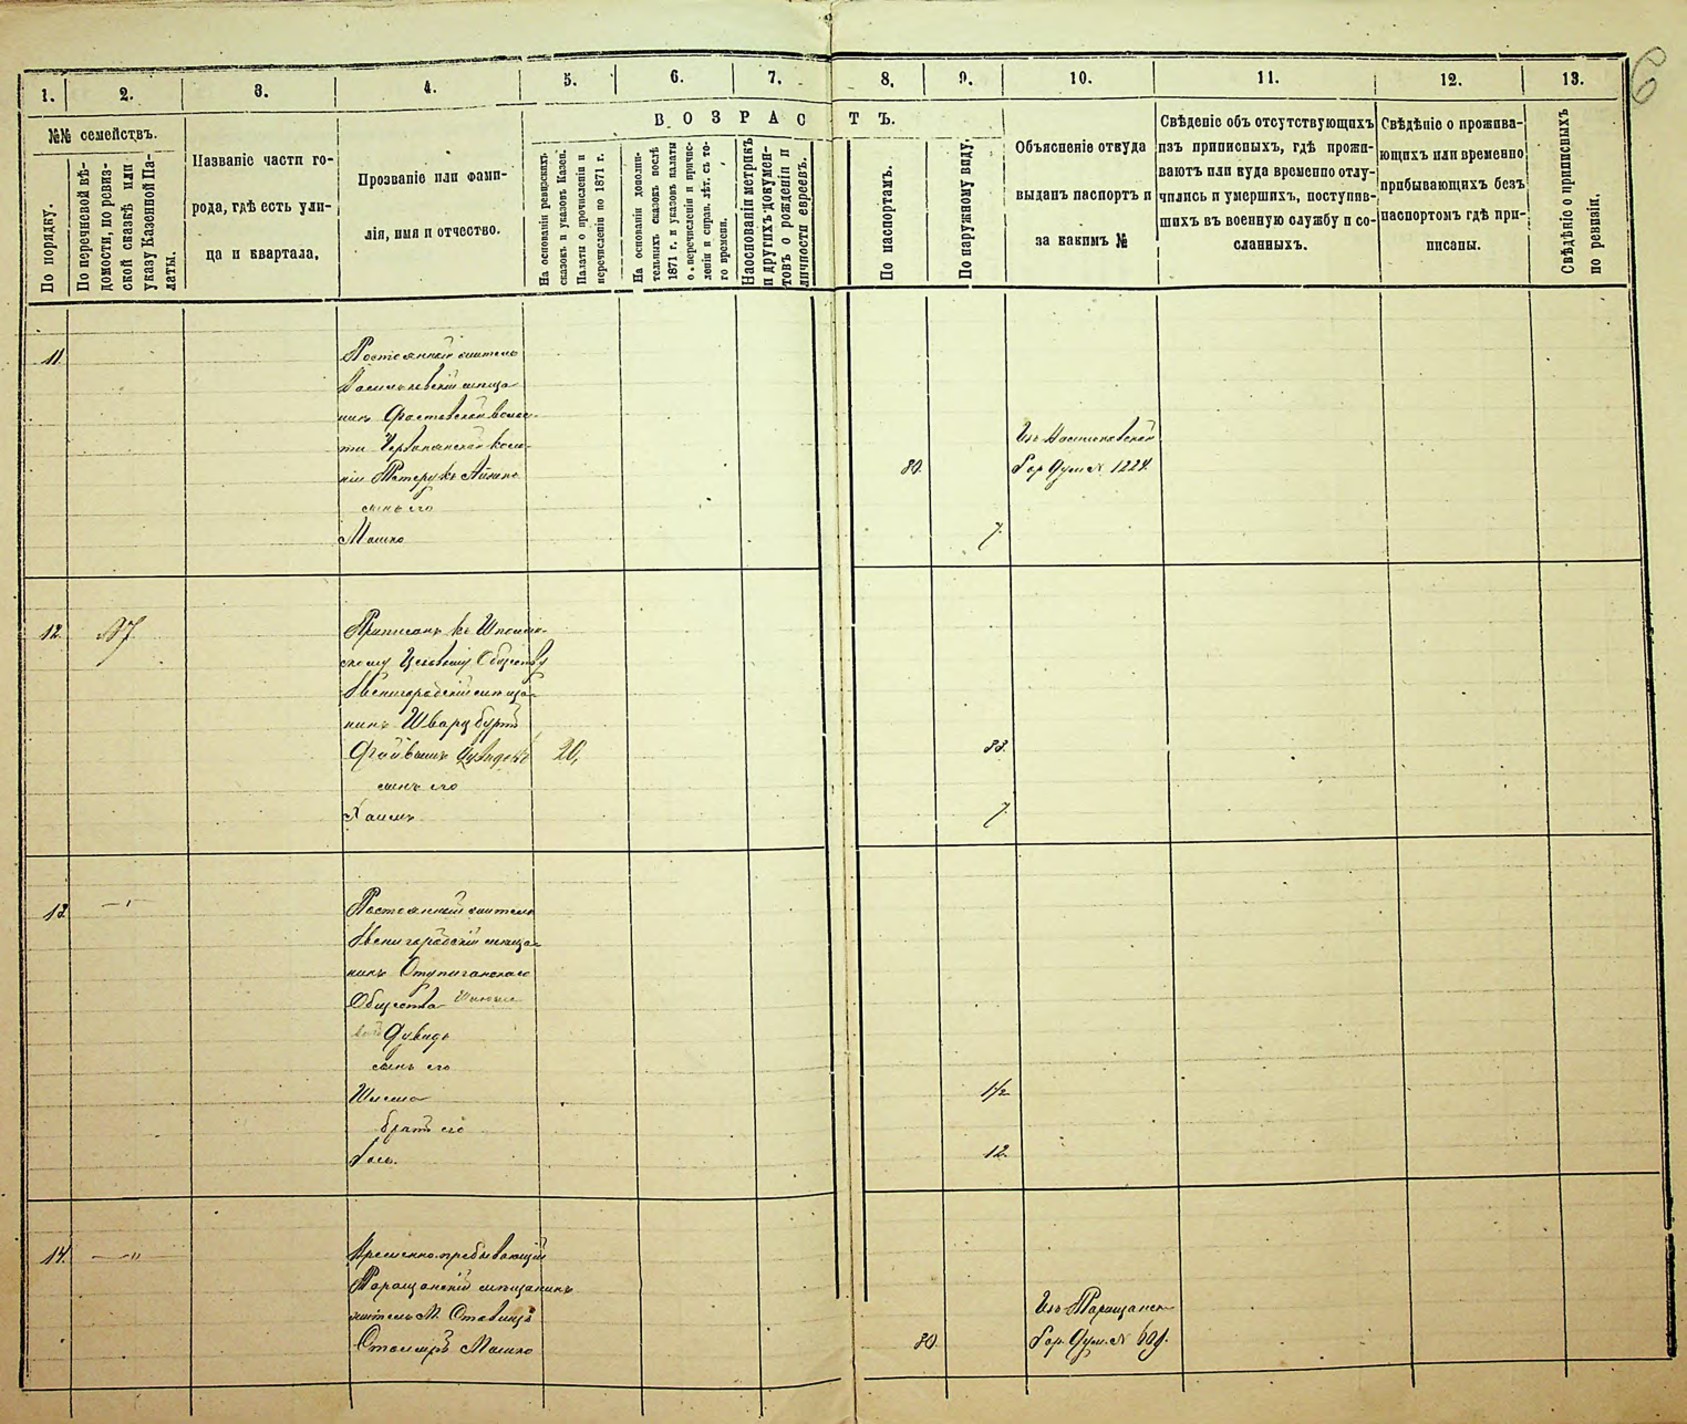 6
1. 2. 3. 4. 5. 6. 7. 8. 9. 10. 11. 12. 13.
№№ семействъ.
По порядку.
По перечневой вѣ-
домости, по ревиз-
ской сказкѣ или
указу Казенной Па-
латы.
Названіе части го-
рода, гдѣ есть ули-
ца и квартала.
Прозваніе или фами-
лія, имя и отчество.
ВОЗРАСТЪ.
На основаніи ревизскихъ
сказокъ и указовъ Казен.
Палаты о причисленіи и
перечисленіи по 1871 г.
На основаніи дополни-
тельныхъ сказокъ послѣ
1871 г. и указовъ палаты
о перечисленіи и причис-
леніи и справ. лѣт. съ то-
го времени.
На основаніи метрикъ
и другихъ докумен-
товъ о рожденіи и
личности евреевъ.
По паспортамъ.
По наружному виду.
Объясненіе откуда
выданъ паспортъ и
за какимъ №
Свѣденіе объ отсутствующихъ
изъ приписныхъ, гдѣ прожи-
ваютъ или куда временно отлу-
чились и умершихъ, поступив-
шихъ въ военную службу и со-
сланныхъ.
Свѣдѣніе о прожива-
ющихъ или временно
прибывающихъ безъ
паспортомъ гдѣ при-
писаны.
Свѣдѣніе о приписныхъ
по ревизіи.
11.
Постоянный житель
Васильковскій мѣща-
нинъ Фастовской волос-
ти Червонянской коло-
ніи
сынъ его
Мошко
80.
7.
Изъ Васильковской
Гор. Думы № 1224.
12.
Приписанъ къ Шполян-
скому Цеховому Обществу
Звенигородскій мѣща-
нинъ Шварцбуртъ
Файвышъ Дувидовъ 20,
сынъ его
Хаимъ
38.
7.
13.
Постоянный житель
Звенигородскій мѣща-
нинъ
Общества
Дувидъ
сынъ его
Шлема
братъ его
1/2
12.
14.
Временно пребывающій
Таращанскій мѣщанинъ
житель М. Ставищъ
Столяръ Мошко
30.
Изъ Таращанск.
Гор. Думы №